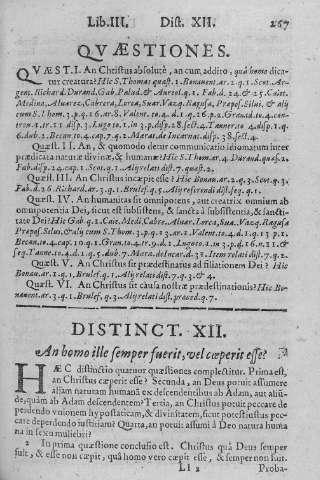 Lib. III. Dist. XII. 267
QVÆSTIONES.
QVÆST. I. An Christus absolutè, an cum addito, quà homo dica-
tur creatura? Hic S. Thomas quæst. 1. Bonauent. ar. 2. q. 1. Scot. Ar-
gent. Richard. Durand. Gab. Palud. & Aureol. q. 1. Fab. d. 24. & 25. Caiet.
Medina, Aluarez, Cabrera, Lorca, Suar. Vazq. Ragusa, Prepos. Silui. & alij
cum S. Thom. 3. p. q. 16. ar. 8. Valent. to. 4. d. 1. q. 16. p. 2.
6. dub. 2. Becan. to. 4. cap. 7. q. 2.
Quæst. II. An, & quomodo detur communicatio idiomatum inter
prædicata naturæ diuinæ, & humanæ? Hic S. Thom. ar. 4. Durand. quæst. 2.
Fab. disp. 24. Scot. q. 1. Alij relati disp. 7. quæst. 2.
Quæst. III. An Christus incæpit esse? Hic Bonau. ar. 2. q. 3. Scot. q. 3.
Fab. d. 26. Richard. ar. 3. q. 1. Brulef. q. 1. Alij referendi dist. seq. q. 1.
Quæst. IV. An humanitas sit omnipotens, aut creatrix omnium ab
omnipotentia Dei, sicut est subsistens, & sancta à subsistentia, & sanctitate
Dei? Hic Gab. q. 1. Caiet. Med. Cabre. Aluar. Lorca, Suar. Vazq. Ragusa
Prepos. Silui. & alij cum S. Thom. 3. p. q. 13. ar. 1. Valent. to. 4. d. 1. q. 13. p. 1.
Becan. to. 4. cap. 10. q. 1. Gran. to. 4. tr. 9. d. 2. Lugo to. 1. in 3. p. d. 16. n. 21. &
seq. Tanne. to. 4. d. 1. q. 5. dub. 7. Mora. de Incar. d. 32. Item relati dist. 7. q. 2.
Quæst. V. An Christus sit prædestinatus ad filiationem Dei? Hic
Bonau. ar. 2. q. 1. Brulef. q. 1. Alij relati dist. 7. q. 3. & 4.
Quæst. VI. An Christus sit causa nostræ prædestinationis? Hic Bo-
nauent. ar. 3. q. 1. Brulef. q. 3. Alij relati dist. præced. q. 7.
DISTINCT. XII.
An homo ille semper fuerit, vel cœperit esse?
HÆC distinctio quatuor quæstiones complectitur. Prima est,
an Christus cæperit esse? Secunda, an Deus potuit assumere
aliam naturam humanã ex descendentibus ab Adam, aut aliũ-
de, quàm ab Adam descendentem? Tertia, an Christus potuit peccare de
perdendo vnionem hypostaticam, & diuinitatem, sicut potest iustus pec-
care deperdendo iustitiam? Quarta, an potuit assumi à Deo natura huma
na in sexu muliebri?
2 In prima quæstione conclusio est. Christus quà Deus semper
fuit, & esse non cæpit, quà homo verò cæpit esse, & semper non fuit.
Ll 2 Proba-